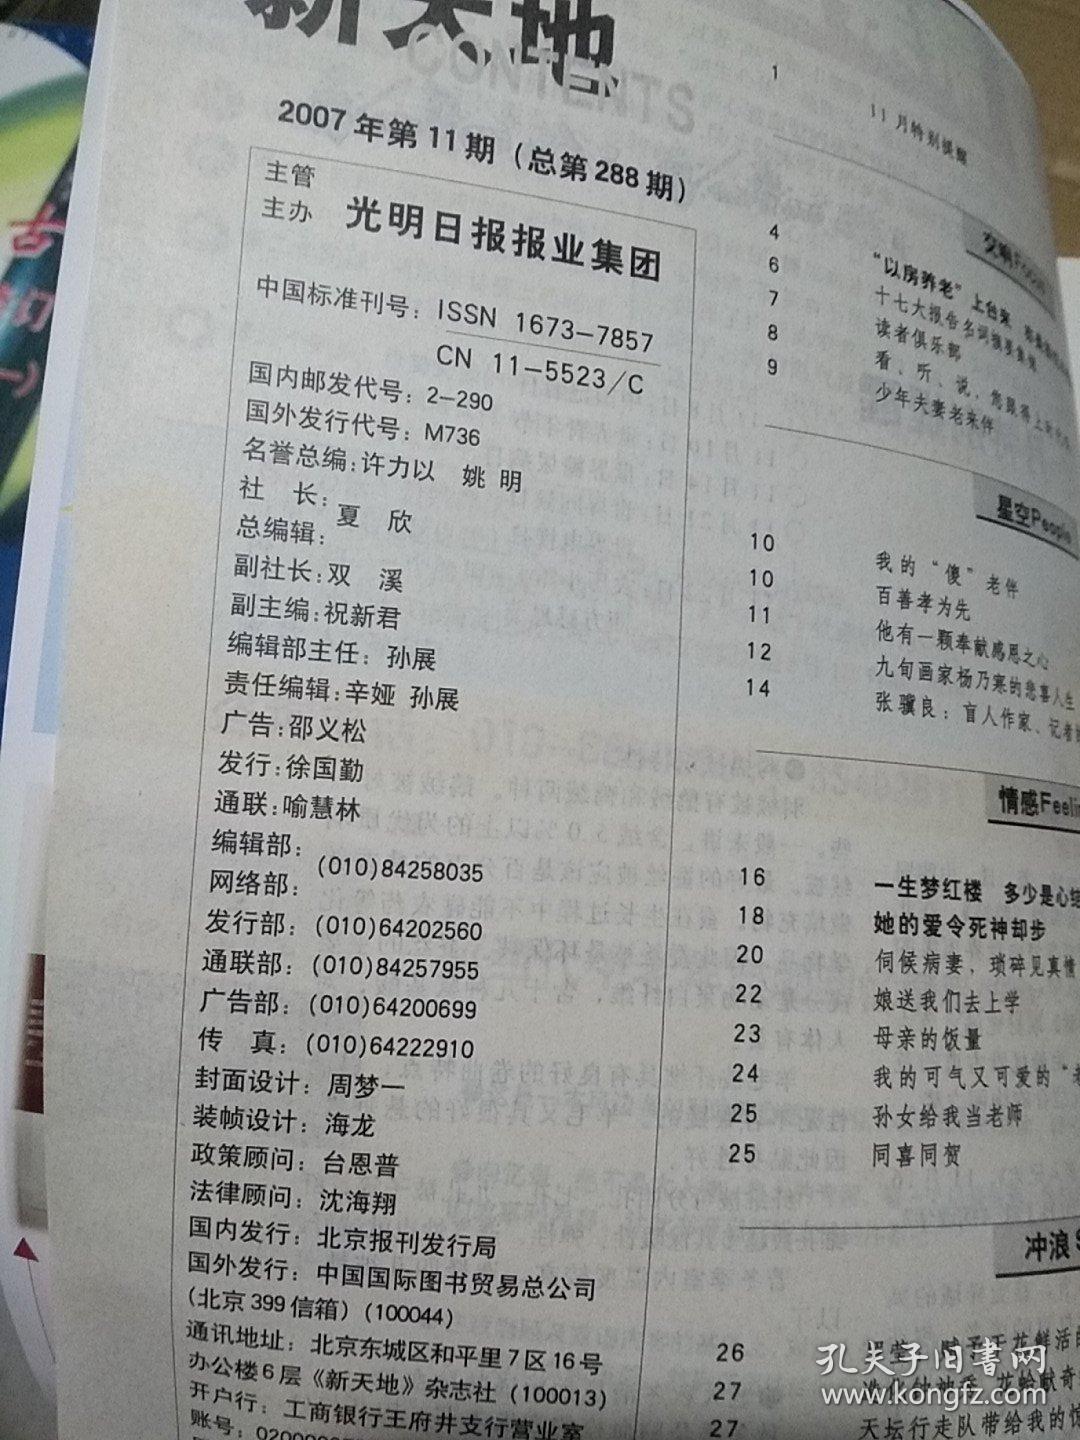 新天地
CONTENTS
2007年第11期（总第288期）
主管
主办 光明日报报业集团
中国标准刊号：ISSN 1673-7857
CN 11-5523/C
国内邮发代号：2-290
国外发行代号：M736
名誉总编：许力以 姚明
社 长：
夏 欣
总编辑：
副社长：双 溪
副主编：祝新君
编辑部主任：孙展
责任编辑：辛娅 孙展
广告：邵义松
发行：徐国勤
通联：喻慧林
编辑部：
(010)84258035
网络部：
发行部：(010)64202560
通联部：(010)84257955
广告部：(010)64200699
传 真：(010)64222910
封面设计：周梦一
装帧设计：海龙
政策顾问：台恩普
法律顾问：沈海翔
国内发行：北京报刊发行局
国外发行：中国国际图书贸易总公司
(北京399信箱) (100044)
通讯地址：北京东城区和平里7区16号
办公楼6层《新天地》杂志社 (100013)
开户行：工商银行王府井支行营业室
账号：
1 11月特别提醒
交响
4 “以房养老”上台来
6 十七大报告名词摘要集锦
7 读者俱乐部
8 看、听、说，您跟得上
9 少年夫妻老来伴
星空People
10 我的“傻”老伴
10 百善孝为先
11 他有一颗奉献感恩之心
12 九旬画家杨乃寒的悲喜人生
14 张骥良：盲人作家、记者
情感Feelin
16 一生梦红楼 多少是心结
18 她的爱令死神却步
20 伺候病妻，琐碎见真情
22 娘送我们去上学
23 母亲的饭量
24 我的可气又可爱的“老
25 孙女给我当老师
25 同喜同贺
冲浪S
26
27
27 天坛行走队带给我的惊
孔夫子旧书网
www.kongfz.com
古